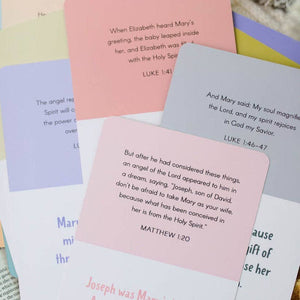 When Elizabeth heard Mary's
greeting, the baby leaped inside
her, and Elizabeth was
with the Holy Spirit.
LUKE 1:41
The angel
Spirit will
the power
over
And Mary said: My soul
the Lord, and my spirit rejoices
in God my Savior.
LUKE 1:46–47
But after he had considered these things,
an angel of the Lord appeared to him in
a dream, saying, "Joseph, son of David,
don't be afraid to take Mary as your wife,
because what has been conceived in
her is from the Holy Spirit."
MATTHEW 1:20
Mary
mi
thr
ause
gift of
se her
Joseph was